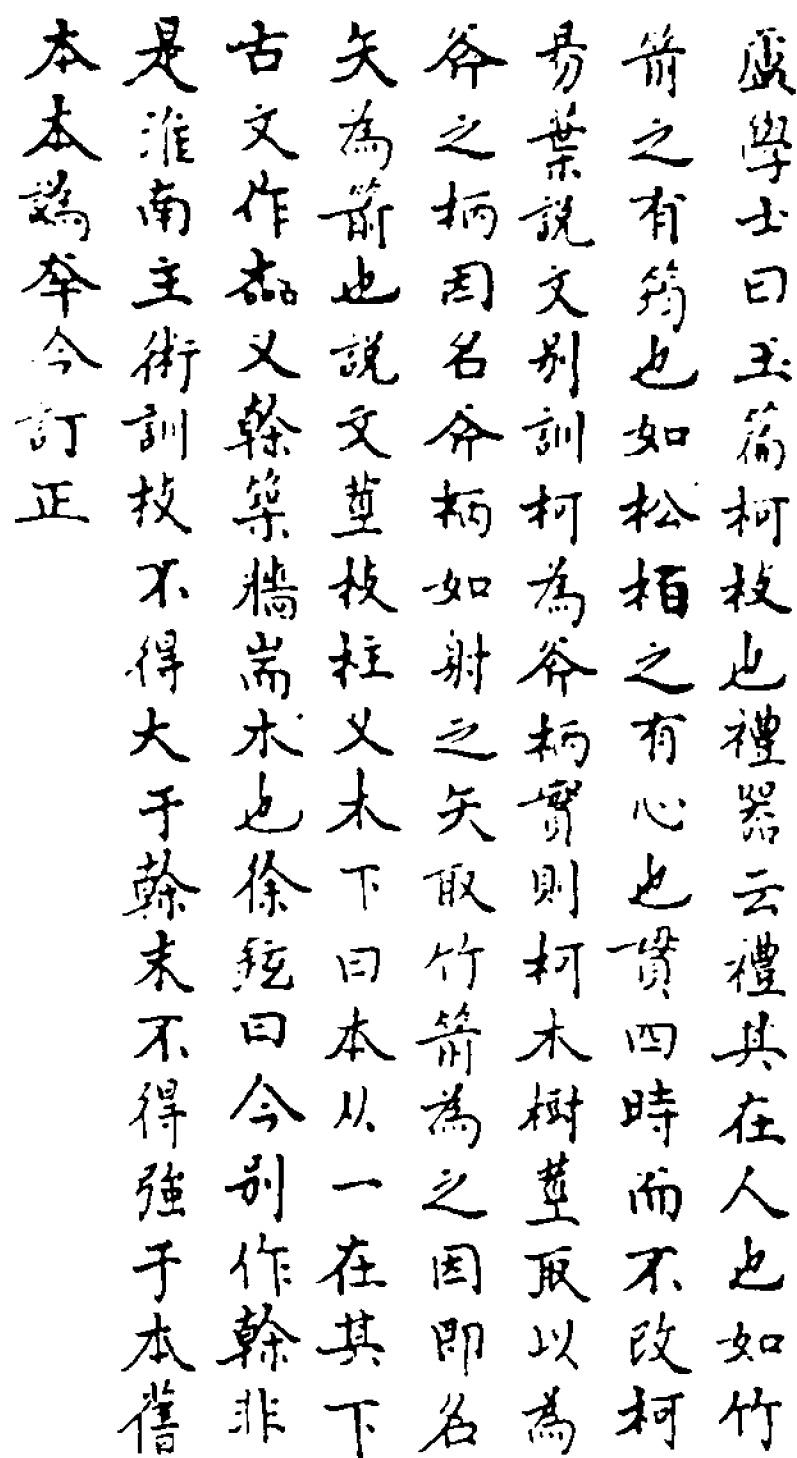 盧學士曰玉篇柯枝也禮器云禮其在人也如竹
箭之有筠也如松栢之有心也貫四時而不改柯
易葉說文別訓柯為斧柄實則柯木樹莖取以為
斧之柄因名斧柄如射之矢取竹箭為之因即名
矢為箭也說文莖枝柱又木下曰本从一在其下
古文作𣎵又榦築牆耑木也徐鉉曰今別作幹非
是淮南主術訓枝不得大于榦末不得強于本舊
本本譌夲今訂正